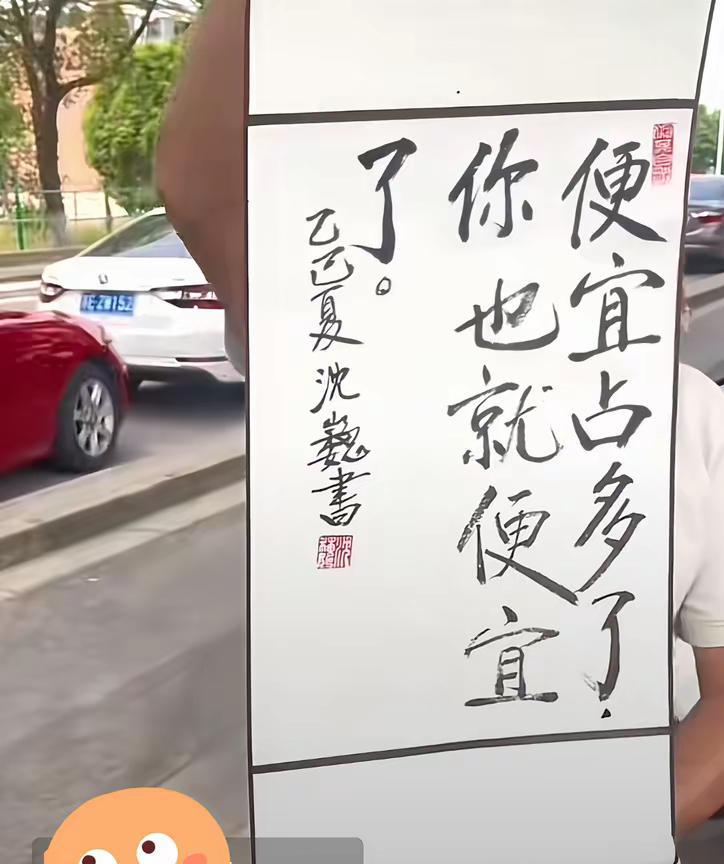 便宜占多了,
你也就便宜
了。
乙巳夏沈巍書
沈巍